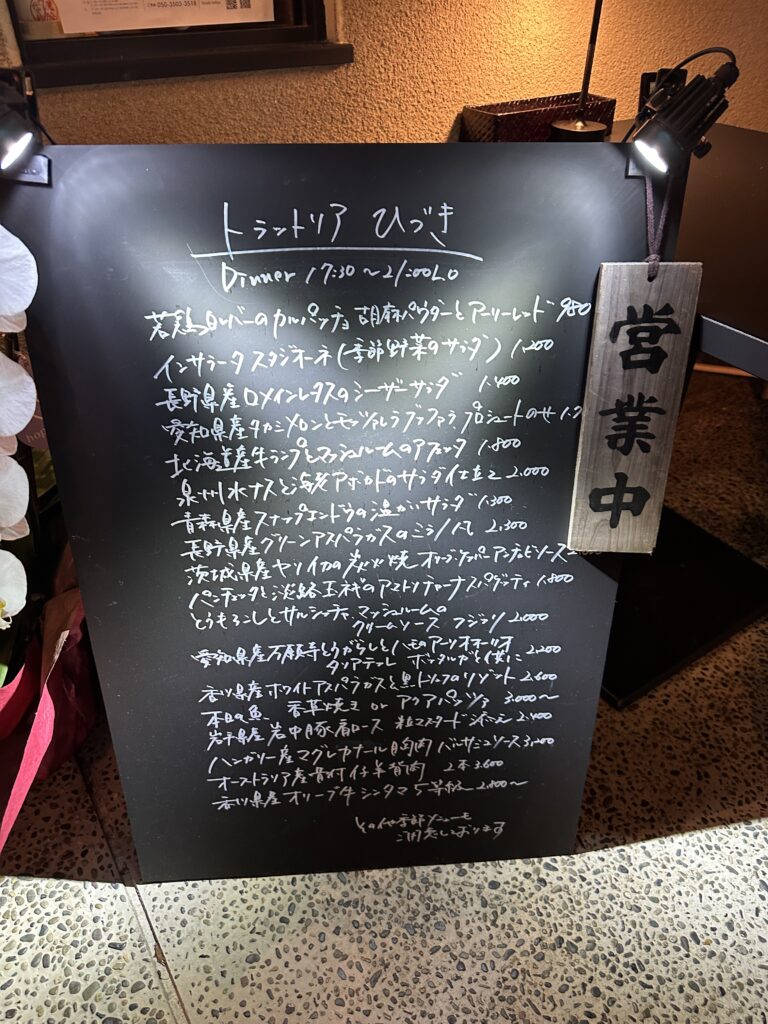 050-3503-3518
トラットリア ひづき
Dinner 17:30～21:00LO
若鶏レバーのカルパッチョ 胡麻パウダーとアーリーレッド 980
インサラータ スタジオーネ(季節野菜のサラダ) 1,200
長野県産ロメインレタスのシーザーサラダ 1,400
愛知県産タカミメロンとモッツァレラブッファラ プロシュートのせ 1.2
北海道産牛ランプとマッシュルームのアフェッタ 1,800
泉州水ナスと海老アボカドのサラダ仕立て 2,000
青森県産スナップエンドウの温かいサラダ 1,300
長野県産グリーンアスパラガスのミラノ風 2,300
茨城県産ヤリイカの炭火焼 オリーブケッパーアンチョビソース
パンチェッタと淡路玉ねぎのアマトリチャーナスパゲッティ 1,800
とうもろこしとサルシッチャ マッシュルームの
クリームソース フジッリ 2,000
愛知県産万願寺とうがらしとハモのアーリオオーリオ
タリアテッレ ボッタルガと供に 2,200
香川県産ホワイトアスパラガスと黒トリュフのリゾット 2,600
本日の魚 香草焼き or アクアパッツァ 3,000～
岩手県産 岩中豚肩ロース 粒マスタード添え 2,400
ハンガリー産マグレカナール胸肉 バルサミコソース 3,200
オーストラリア産骨付仔羊背肉 2本 3,600
香川県産 オリーブ牛シンタマ 5等級 2,800～
その他季節メニューも
ご用意しております
営業中